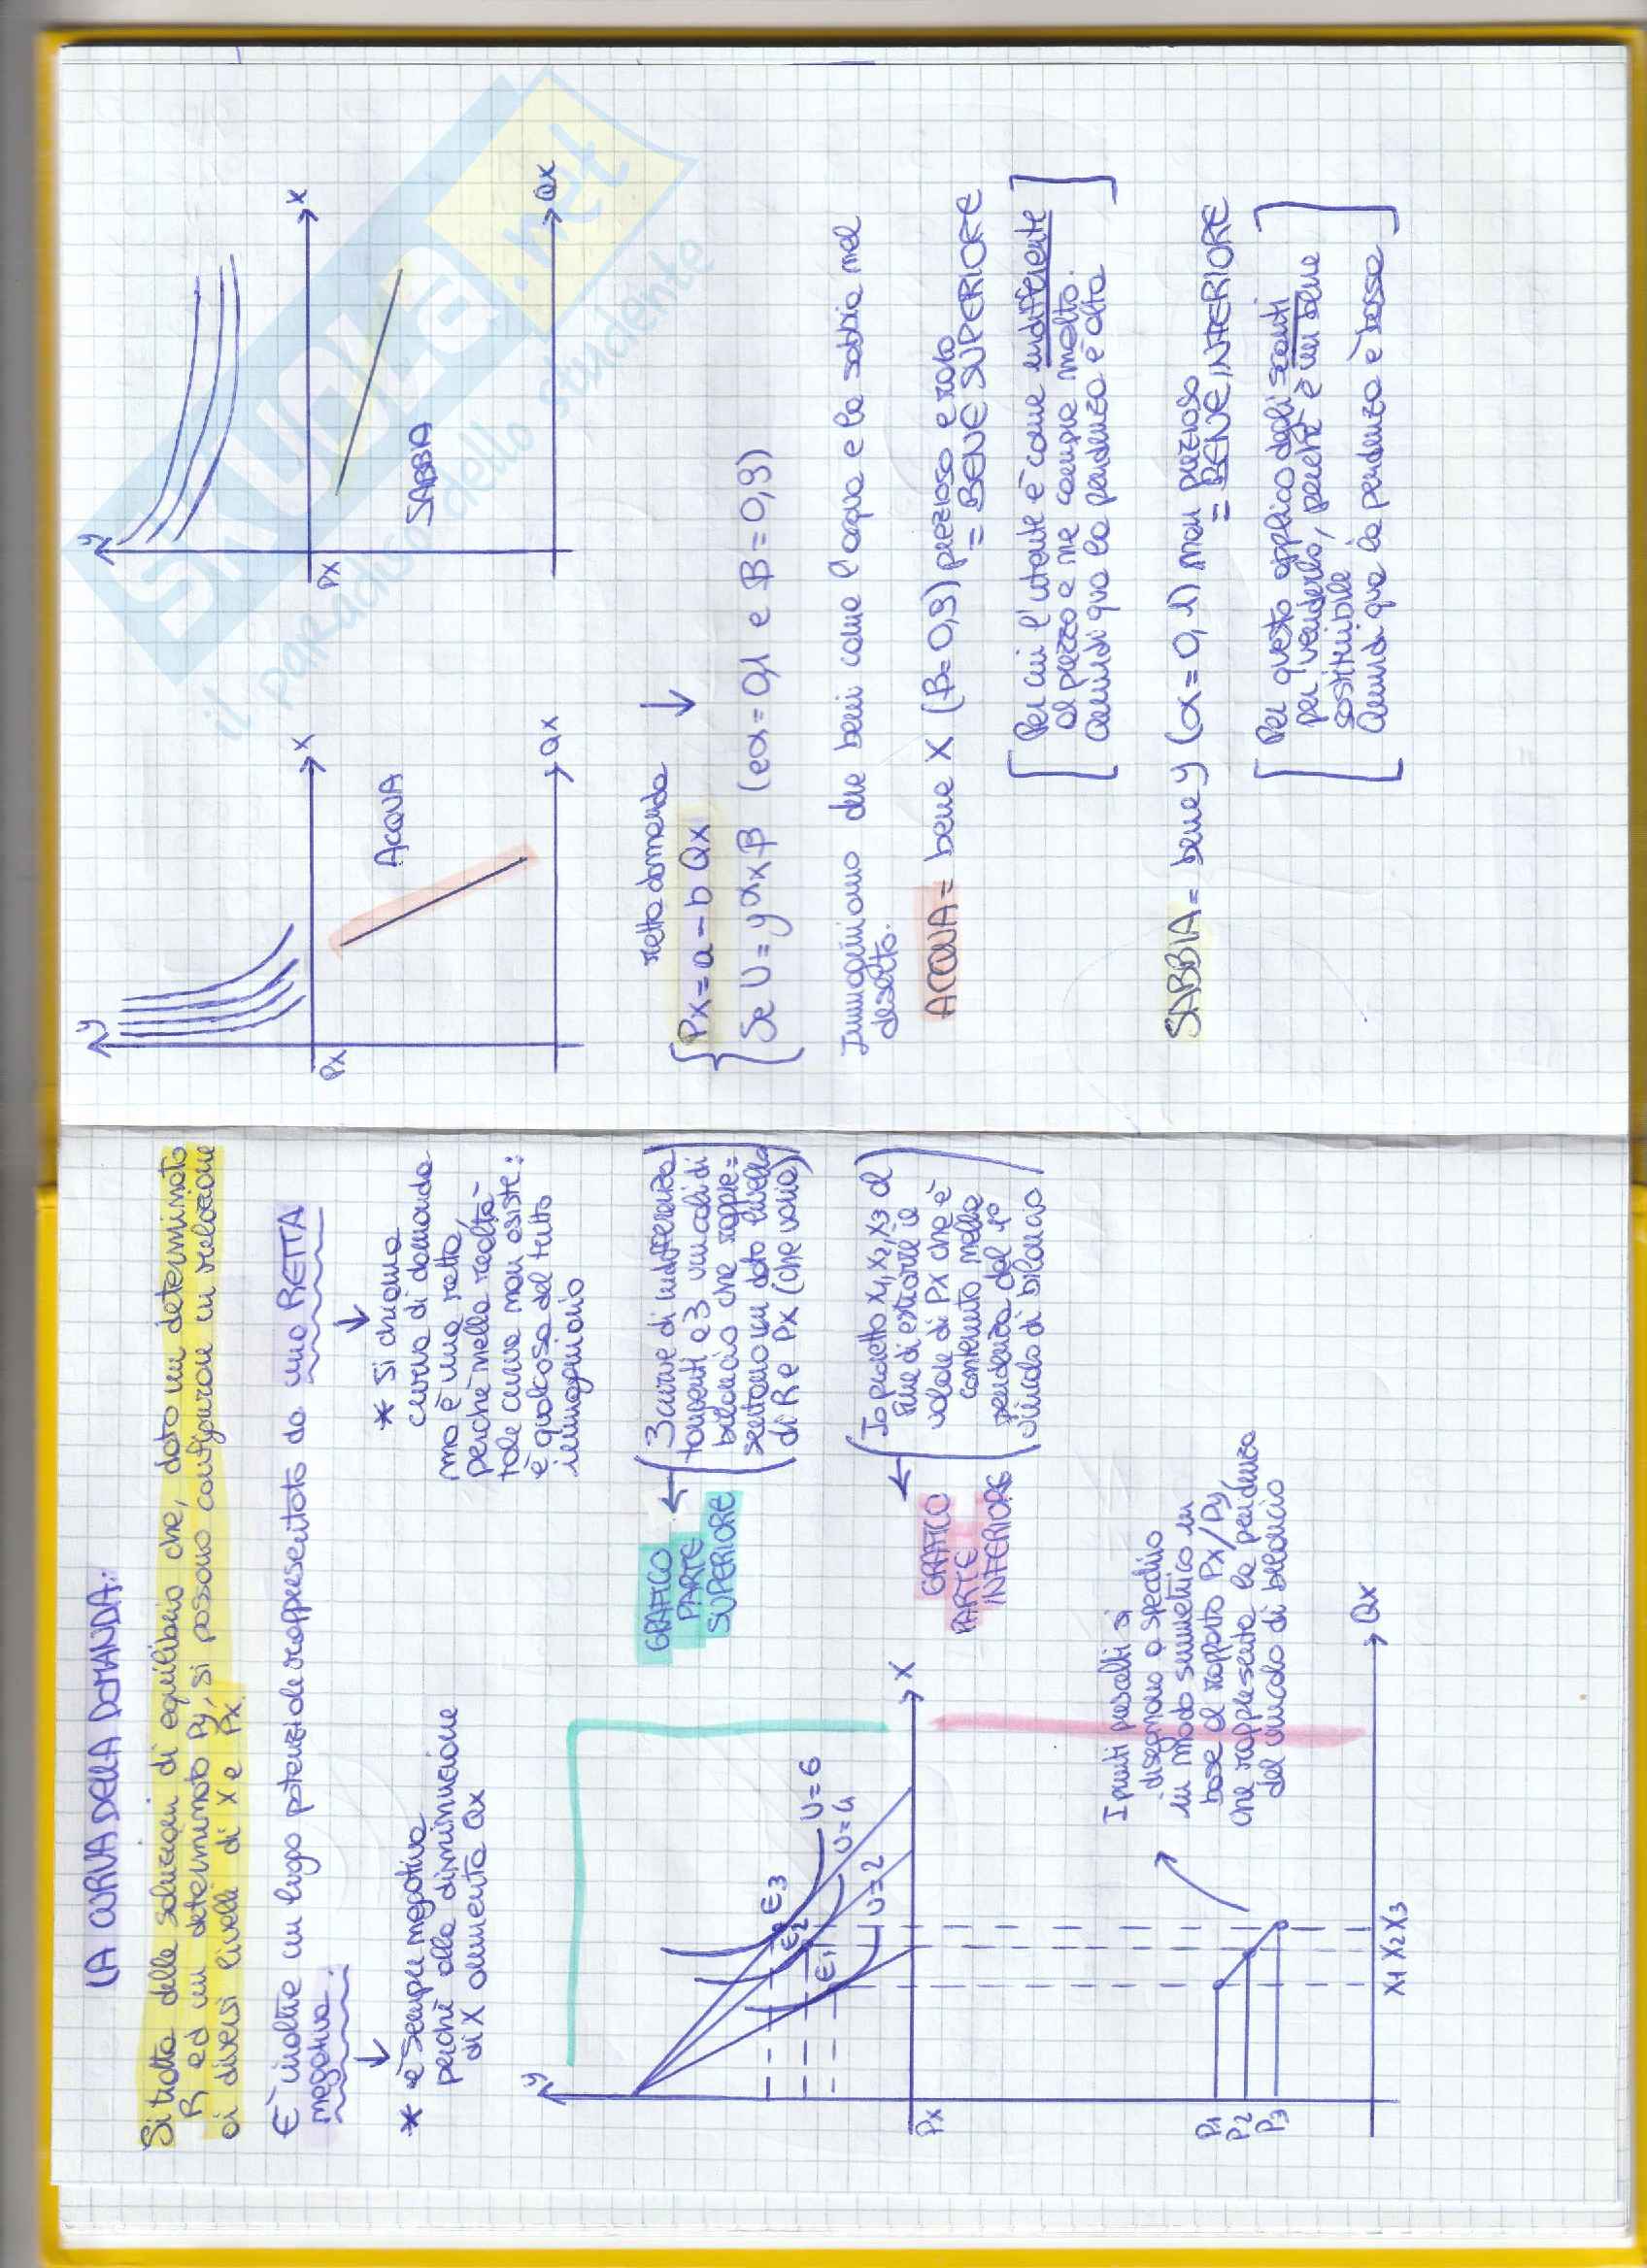 LA CURVA DELLA DOMANDA:
Si tratta delle soluzioni di equilibrio che, dato un determinato
R ed un determinato Py, si possono configurare in relazione
ai diversi livelli di X e Px.
È inoltre un luogo potenziale rappresentato da una RETTA
negativa.
* è sempre negativa
perché alla diminuzione
di X aumenta Qx
* si chiama
curva di domanda
ma è una retta,
perché nella realtà
tale curva non esiste:
è qualcosa del tutto
immaginario
y
E3
E2
E1
U=6
U=4
U=2
X
Px
P1
P2
P3
X1 X2 X3
Qx
GRAFICO
PARTE
SUPERIORE
(3 curve di indifferenza
tangenti a 3 vincoli di
bilancio che rappre=
sentano un dato livello
di R e Px (che varia))
GRAFICO
PARTE
INFERIORE
(Io proietto x1, x2, x3 al
fine di estrarre il
valore di Px che è
contenuto nella
pendenza del 1°
vincolo di bilancio)
I punti prescelti si
disegnano a specchio
in modo simmetrico in
base al rapporto Px/Py,
che rappresenta la pendenza
del vincolo di bilancio
y
X
Px
ACQUA
Qx
y
X
Px
SABBIA
Qx
retta domanda
Px = a - b Qx
Se U = y^α x^β (e α = 0,1 e β = 0,9)
Immaginiamo due beni come l'acqua e la sabbia nel
deserto.
ACQUA = bene X (β = 0,9) prezioso e raro
= BENE SUPERIORE
[Per cui l'utente è come indifferente
al prezzo e ne compra molto.
Quindi qua la pendenza è alta]
SABBIA = bene y (α = 0,1) non prezioso
= BENE INFERIORE
[Per questo applico degli sconti
per venderlo, perché è un bene
sostituibile
Quindi qua la pendenza è bassa]
skuola.net
il paradiso dello studente